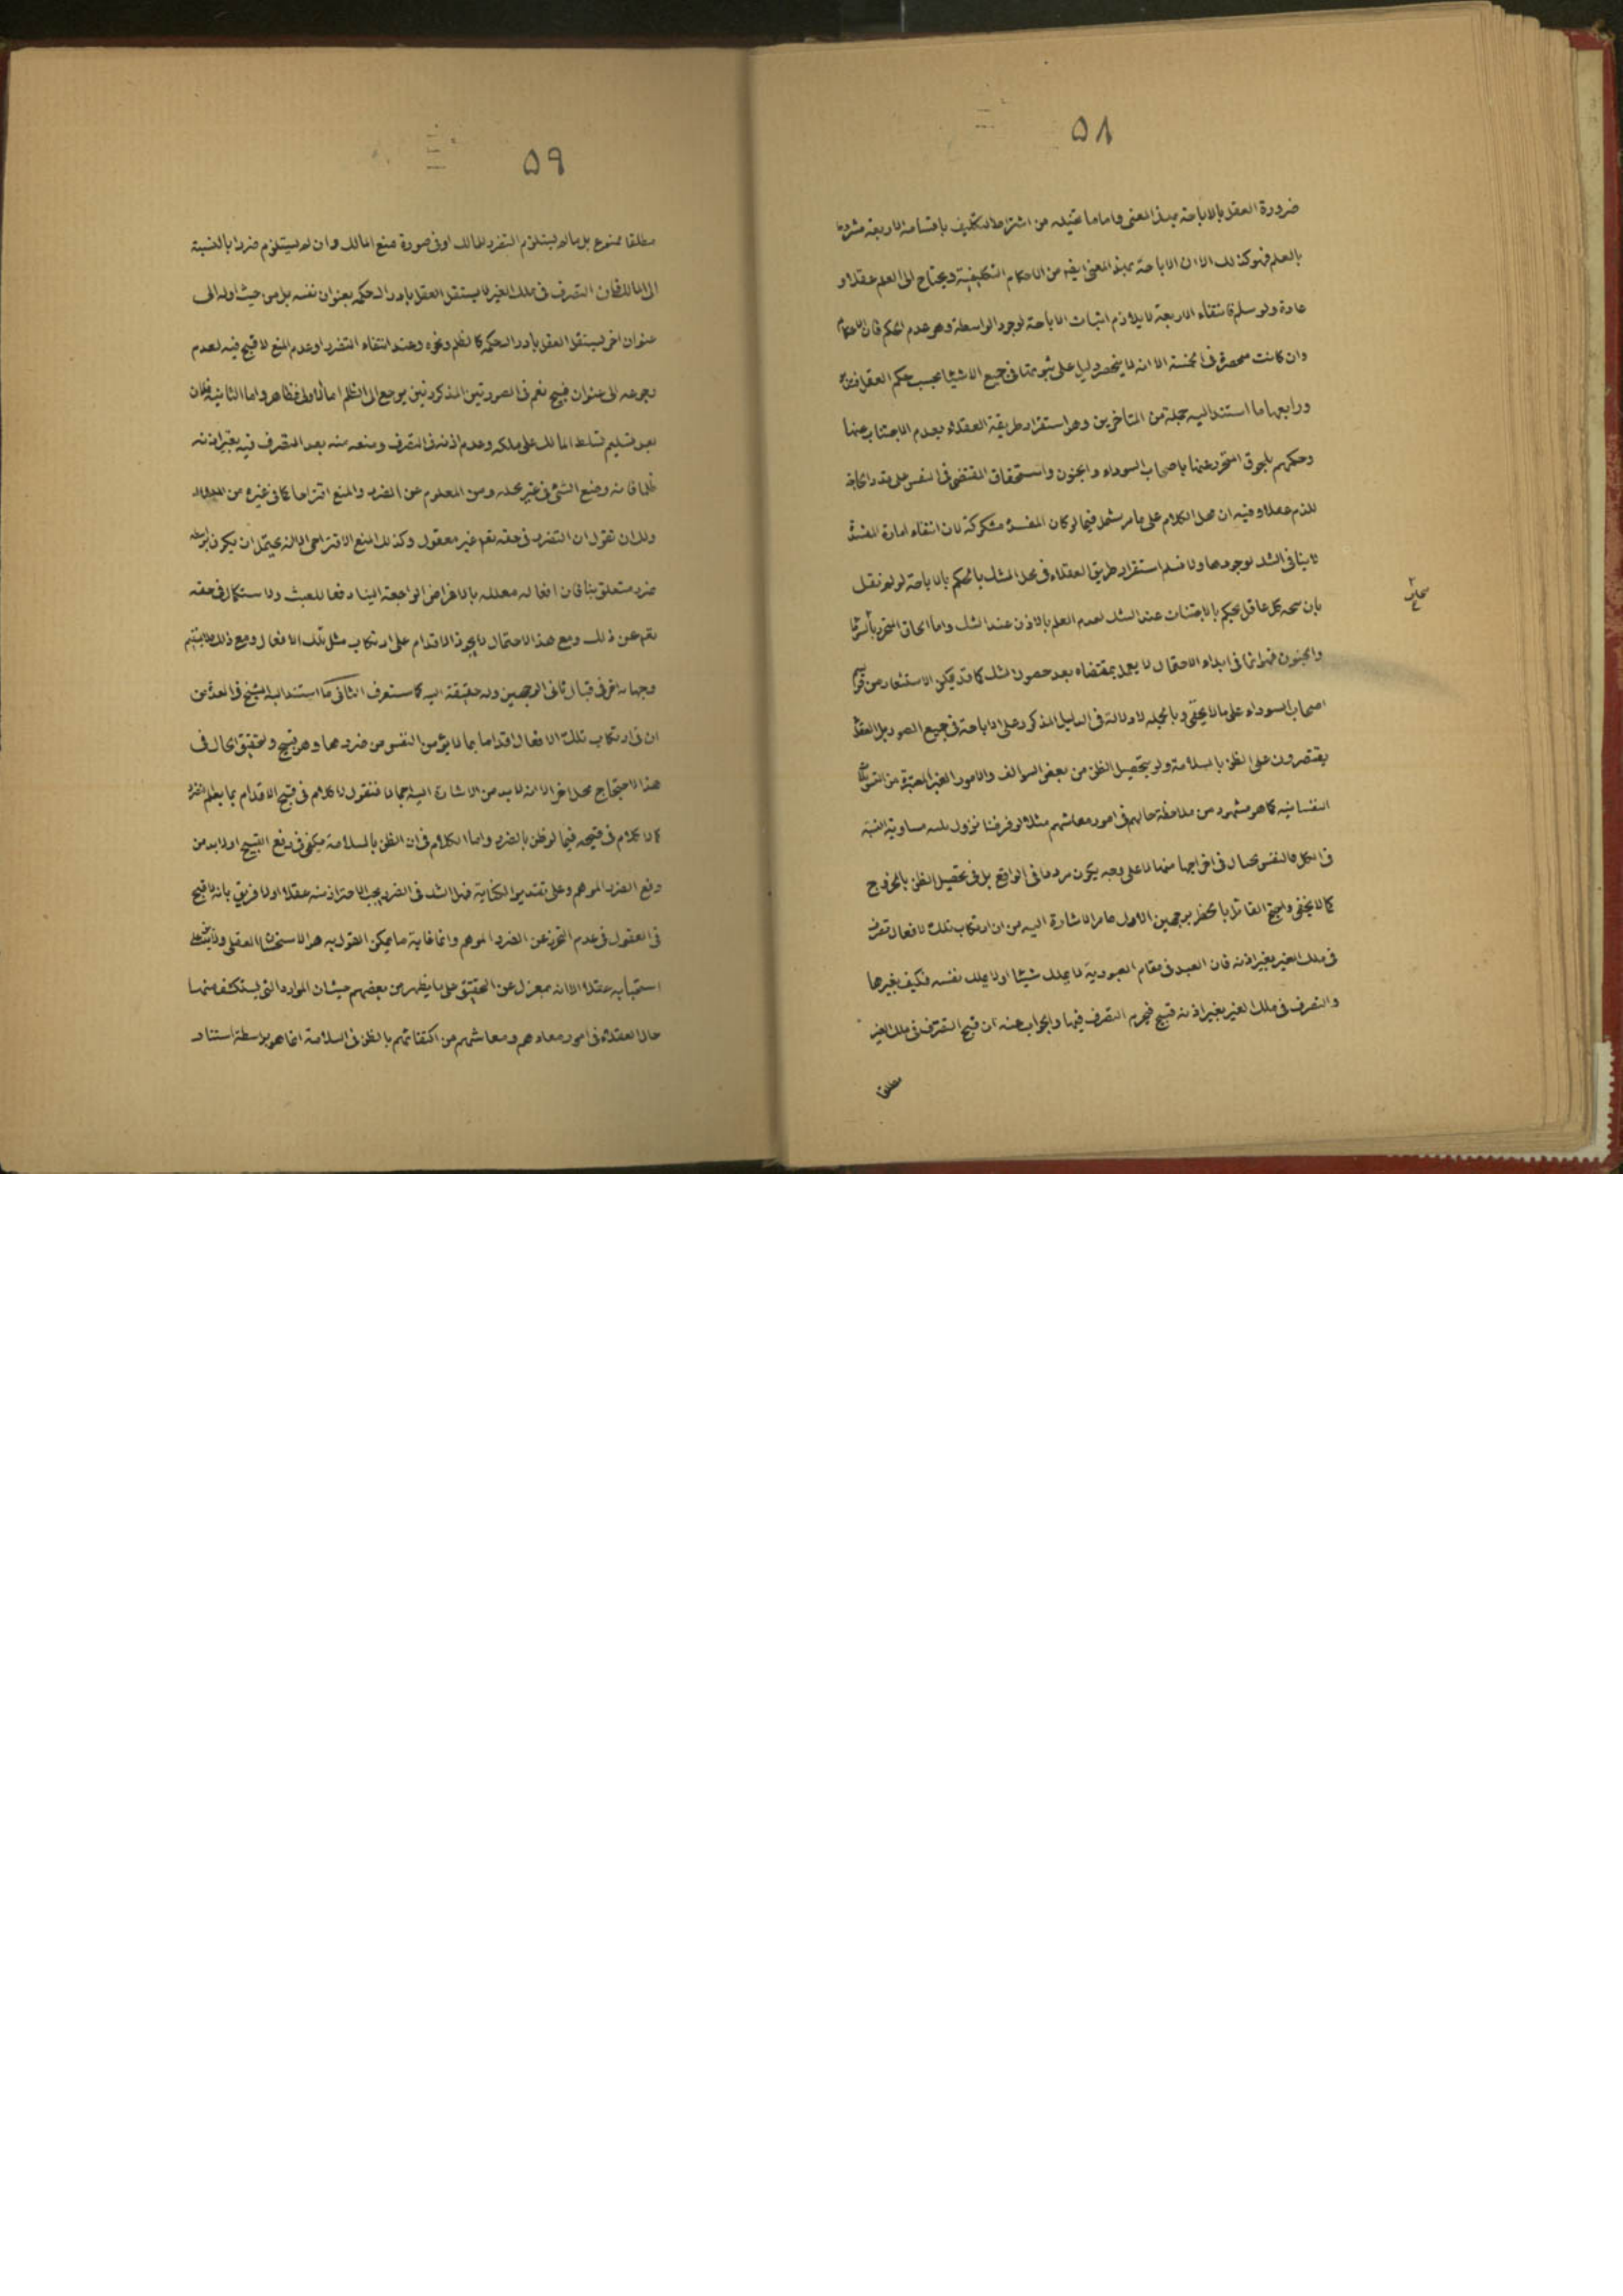 ۵۸
ضرورة العقل بالاباحة بهذا المعنى واما ما تخيله من اشتراط التكليف باقسامه الاربعة مشروط
بالعلم فهو كذلك الا ان الاباحة بهذا المعنى ايضا من الاحكام التكليفية ويحتاج الى العلم عقلا و
عادة ولو سلم فانتفاء الاربعة لا يلازم اثبات الاباحة لوجود الواسطة وهو عدم الحكم فان الاحكام
وان كانت منحصرة فى الخمسة الا انه لا ينحصر دليل على ثبوتها فى جميع الاشياء بحسب حكم العقل
ورابعها ما استند اليه جملة من المتأخرين وهو استقرار طريقة العقلاء بعدم الاجتناب عنها
وحكمهم بلحوق المتحرز عنها باصحاب السوداء والجنون واستحقاق المقتضى فى النفس على قدر الحاجة
للذم عقلا وفيه ان محل الكلام على ما مر يشمل فيما لو كان المفسدة مشكوكة لان انتفاء امارة المفسدة
لا ينافى الشك لوجودها ولا نسلم استقرار طريق العقلاء فى محل الشك بالحكم بالاباحة لو لم نقل
بان كل عاقل يحكم بالاجتناب عند الشك لعدم العلم بالاذن عند الشك واما الحاق المتحرز
والجنون فهو انما فى ابداء الاحتمال لا يعمل بمقتضاه بعد حصول الشك كما قد يمكن الاستشعار من قولهم
اصحاب السوداء على ما لا يخفى وبالجملة لا دلالة فى الدليل المذكور على الاباحة فى جميع الصور بل العقلاء
يقتصرون على الظن بالسلامة ولو بتحصيل الظن من بعض السوالف والامور الغير المعتبرة من
النفسانية كما هو مشهود من ملاحظة حالهم فى امور معاشهم مثلا لو فرضنا نزول مساوية النسبة
فى الكل فالنفس تحتال فى اخراجها منها لا على وجه يكون مردها فى الواقع بل فى تحصيل الظن بالخروج
كما لا يخفى واحتج القائل بالحظر بوجهين الاول ما مر الاشارة اليه من ان ارتكاب تلك الافعال تصرف
فى ملك الغير بغير اذنه فان العبد فى مقام العبودية لا يملك شيئا اولا يملك نفسه فكيف بغيرها
والتصرف فى ملك الغير بغير اذنه قبيح فيحرم التصرف فيها والجواب عنه ان قبح التصرف فى ملك الغير
مطلقا
۵۹
مطلقا ممنوع بل ما لم يستلزم التضرر للمالك او فى صورة منع المالك وان لم يستلزم ضررا بالنسبة
الى المالك فان التصرف فى ملك الغير لا يستقل العقل بادراك حكمه بعنوان نفسه بل من حيث اوله الى
عنوان اخر ليستقل العقل بادراك حكمه كالظلم ونحوه وعند انتفاء التضرر او عدم المنع لا قبح فيه لعدم
رجوعه الى عنوان قبيح نعم فى الصورتين المذكورتين يرجع الى الظلم اما الاولى فظاهر واما الثانية فلان
بعد تسليم تسلط المالك على ملكه وعدم اذنه فى التصرف ومنعه منه يعد التصرف فيه بغير اذنه
ظلما فانه وضع الشئ فى غير محله ومن المعلوم عن الضرر والمنع اقتراحا كما فى غيره من
ولك ان تقول ان التضرر فى حقه تعم غير معقول وكذلك المنع الاقتراحى الا انه يحتمل ان يكون بواسطة
ضرر متعلق بنا فان افعاله معللة بالاغراض الراجعة الينا دفعا للعبث والاستكمال فى حقه
تعم عن ذلك ومع هذا الاحتمال لا يجوز الاقدام على ارتكاب مثل تلك الافعال ومع ذلك
وجها اخر فى قبال ثانى الوجهين وله حقيقة اليه كما ستعرف الثانى ما استند اليه الشيخ فى العدة من
ان فى ارتكاب تلك الافعال اقداما بما لا يؤمن النفس من ضررها وهو قبيح وتحقيق الحال فى
هذا الاحتجاج محل اخر الا انه لا بد من الاشارة اليه اجمالا فنقول لا كلام فى قبح الاقدام بما يعلم ضرره
كما لا كلام فى قبحه فيما لو ظن بالضرر واما الكلام فى ان الظن بالسلامة يكفى فى رفع القبح او لا بد من
دفع الضرر الموهم وعلى تقدير الكفاية فهل الشك فى الضرر يجب الاحتراز منه عقلا او لا فريق بانه لا قبح
فى العقول فى عدم التحرز عن الضرر الموهم وانما غاية ما يمكن القول به هو الاستحسان العقلى
استحبابه عقلا الا انه بمعزل عن التحقيق على ما يظهر من بعضهم حيث ان الموارد التى يستكشف منها
حال العقلاء فى امور معادهم ومعاشهم من اكتفائهم بالظن فى السلامة انما هو بواسطة استناد